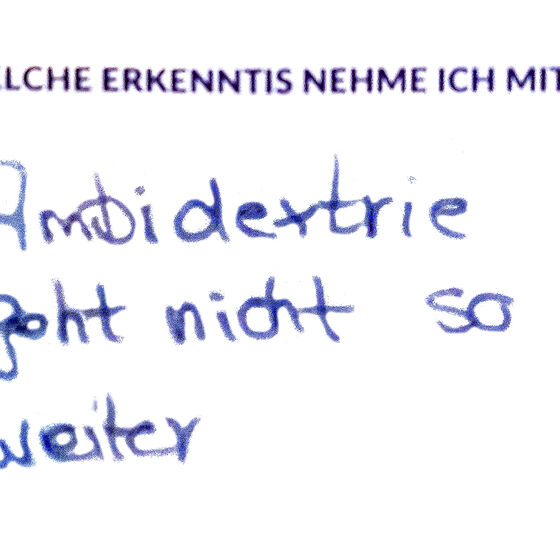 ELCHE ERKENNTIS NEHME ICH MIT
Ambidextrie
geht nicht so
weiter